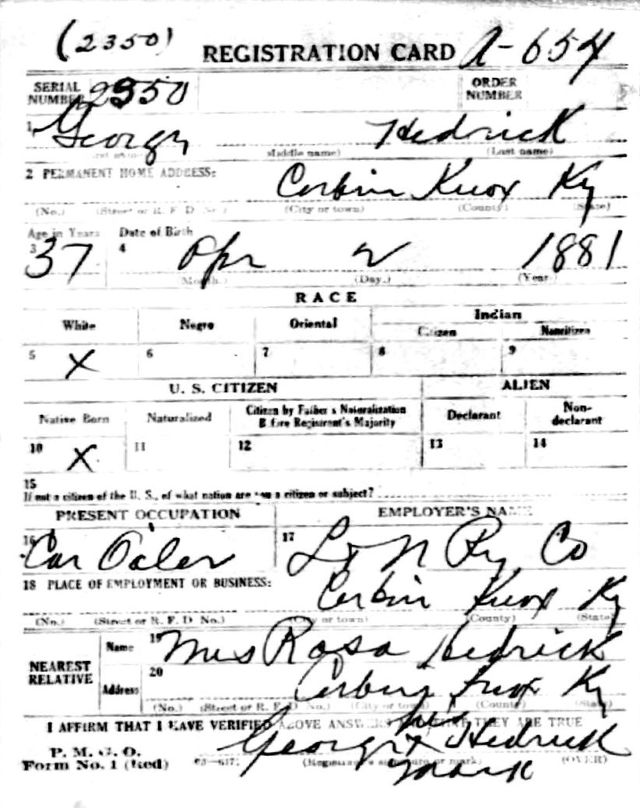 (2350) REGISTRATION CARD A-654
SERIAL NUMBER 2350 ORDER NUMBER
1 George Hedrick
(Middle name) (Last name)
2 PERMANENT HOME ADDRESS: Corbin Knox Ky
(No.) (Street or R. F. D. No.) (City or town) (County) (State)
Age in Years Date of Birth
3 37 4 Apr 2 1881
(Month.) (Day.) (Year)
RACE
White Negro Oriental Indian
Citizen Noncitizen
5 X 6 7 8 9
U. S. CITIZEN ALIEN
Native Born Naturalized Citizen by Father's Naturalization Before Registrant's Majority Declarant Non-declarant
10 X 11 12 13 14
15
If not a citizen of the U. S., of what nation are you a citizen or subject?
PRESENT OCCUPATION EMPLOYER'S NAME
16 Car Oiler 17 L & N Ry Co
18 PLACE OF EMPLOYMENT OR BUSINESS: Corbin Knox Ky
(No.) (Street or R. F. D. No.) (City or town) (County) (State)
NEAREST RELATIVE Name 19 Mrs Rosa Hedrick
Address 20 Corbin Knox Ky
(No.) (Street or R. F. D. No.) (City or town) (County) (State)
I AFFIRM THAT I HAVE VERIFIED ABOVE ANSWERS THEY ARE TRUE
P. M. G. O.
Form No. 1 (Red) George his X Hedrick
(Registrant's signature or mark) mark (OVER)